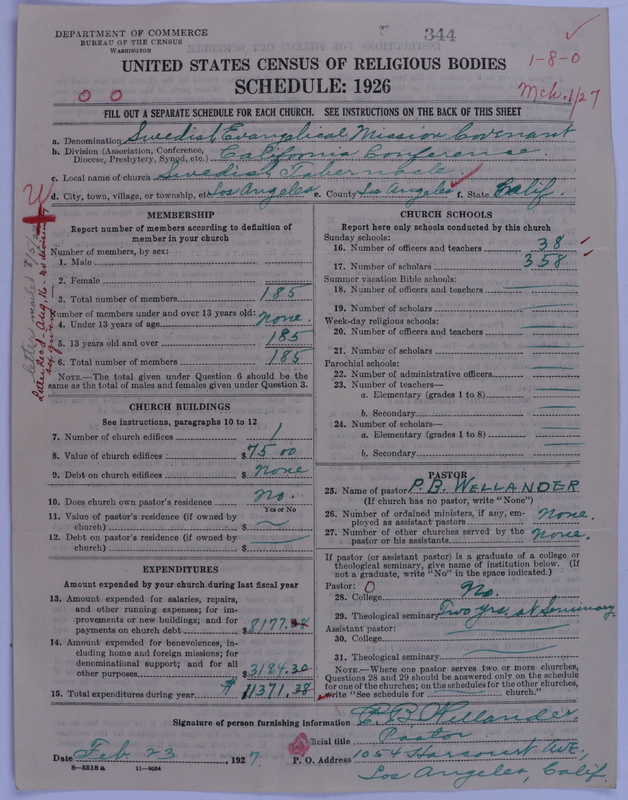 DEPARTMENT OF COMMERCE
BUREAU OF THE CENSUS
WASHINGTON
344
1-8-0
Mch. 1/27
UNITED STATES CENSUS OF RELIGIOUS BODIES
SCHEDULE: 1926
0 0
FILL OUT A SEPARATE SCHEDULE FOR EACH CHURCH. SEE INSTRUCTIONS ON THE BACK OF THIS SHEET
a. Denomination Swedish Evanglical Mission Covenant
b. Division (Association, Conference, Diocese, Presbytery, Synod, etc.) California Conference
c. Local name of church Swedish Tabernacle
d. City, town, village, or township, etc. Los Angeles e. County Los Angeles f. State Calif.
MEMBERSHIP
Report number of members according to definition of
member in your church
Number of members, by sex:
1. Male
2. Female
3. Total number of members 185
Number of members under and over 13 years old:
4. Under 13 years of age None.
5. 13 years old and over 185
6. Total number of members 185
NOTE.—The total given under Question 6 should be the
same as the total of males and females given under Question 3.
CHURCH BUILDINGS
See instructions, paragraphs 10 to 12
7. Number of church edifices 1
8. Value of church edifices $ 75 00
9. Debt on church edifices $ None
10. Does church own pastor's residence No.
Yes or No
11. Value of pastor's residence (if owned by
church) $
12. Debt on pastor's residence (if owned by
church) $
EXPENDITURES
Amount expended by your church during last fiscal year
13. Amount expended for salaries, repairs,
and other running expenses; for im-
provements or new buildings; and for
payments on church debt $ 8177.08
14. Amount expended for benevolences, in-
cluding home and foreign missions; for
denominational support; and for all
other purposes $ 3194.30
15. Total expenditures during year $ 11371,38
CHURCH SCHOOLS
Report here only schools conducted by this church
Sunday schools:
16. Number of officers and teachers 38
17. Number of scholars 358
Summer vacation Bible schools:
18. Number of officers and teachers
19. Number of scholars
Week-day religious schools:
20. Number of officers and teachers
21. Number of scholars
Parochial schools:
22. Number of administrative officers
23. Number of teachers—
a. Elementary (grades 1 to 8)
b. Secondary
24. Number of scholars—
a. Elementary (grades 1 to 8)
b. Secondary
PASTOR
25. Name of pastor P. B. WELLANDER
(If church has no pastor, write "None")
26. Number of ordained ministers, if any, em-
ployed as assistant pastors None.
27. Number of other churches served by the
pastor or his assistants None.
If pastor (or assistant pastor) is a graduate of a college or
theological seminary, give name of institution below. (If
not a graduate, write "No" in the space indicated.)
Pastor: 0
28. College No.
29. Theological seminary Two yrs. at Seminary
Assistant pastor:
30. College
31. Theological seminary
NOTE.—Where one pastor serves two or more churches,
Questions 28 and 29 should be answered only on the schedule
for one of the churches; on the schedules for the other churches,
write "See schedule for church."
Signature of person furnishing information P. B. Wellander
Official title Pastor
Date Feb 23, 1927. P. O. Address 1054 Harcourt AVE.,
Los Angeles, Calif.
8—5518 a 11—9034